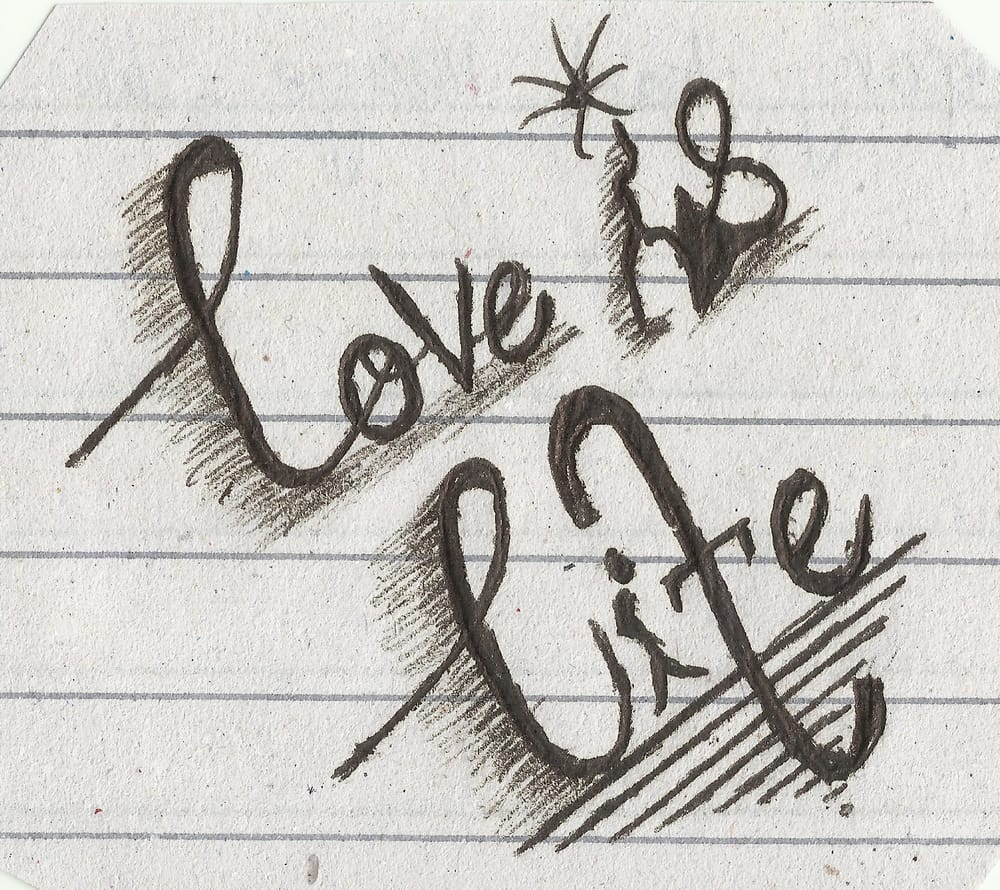 love is
life